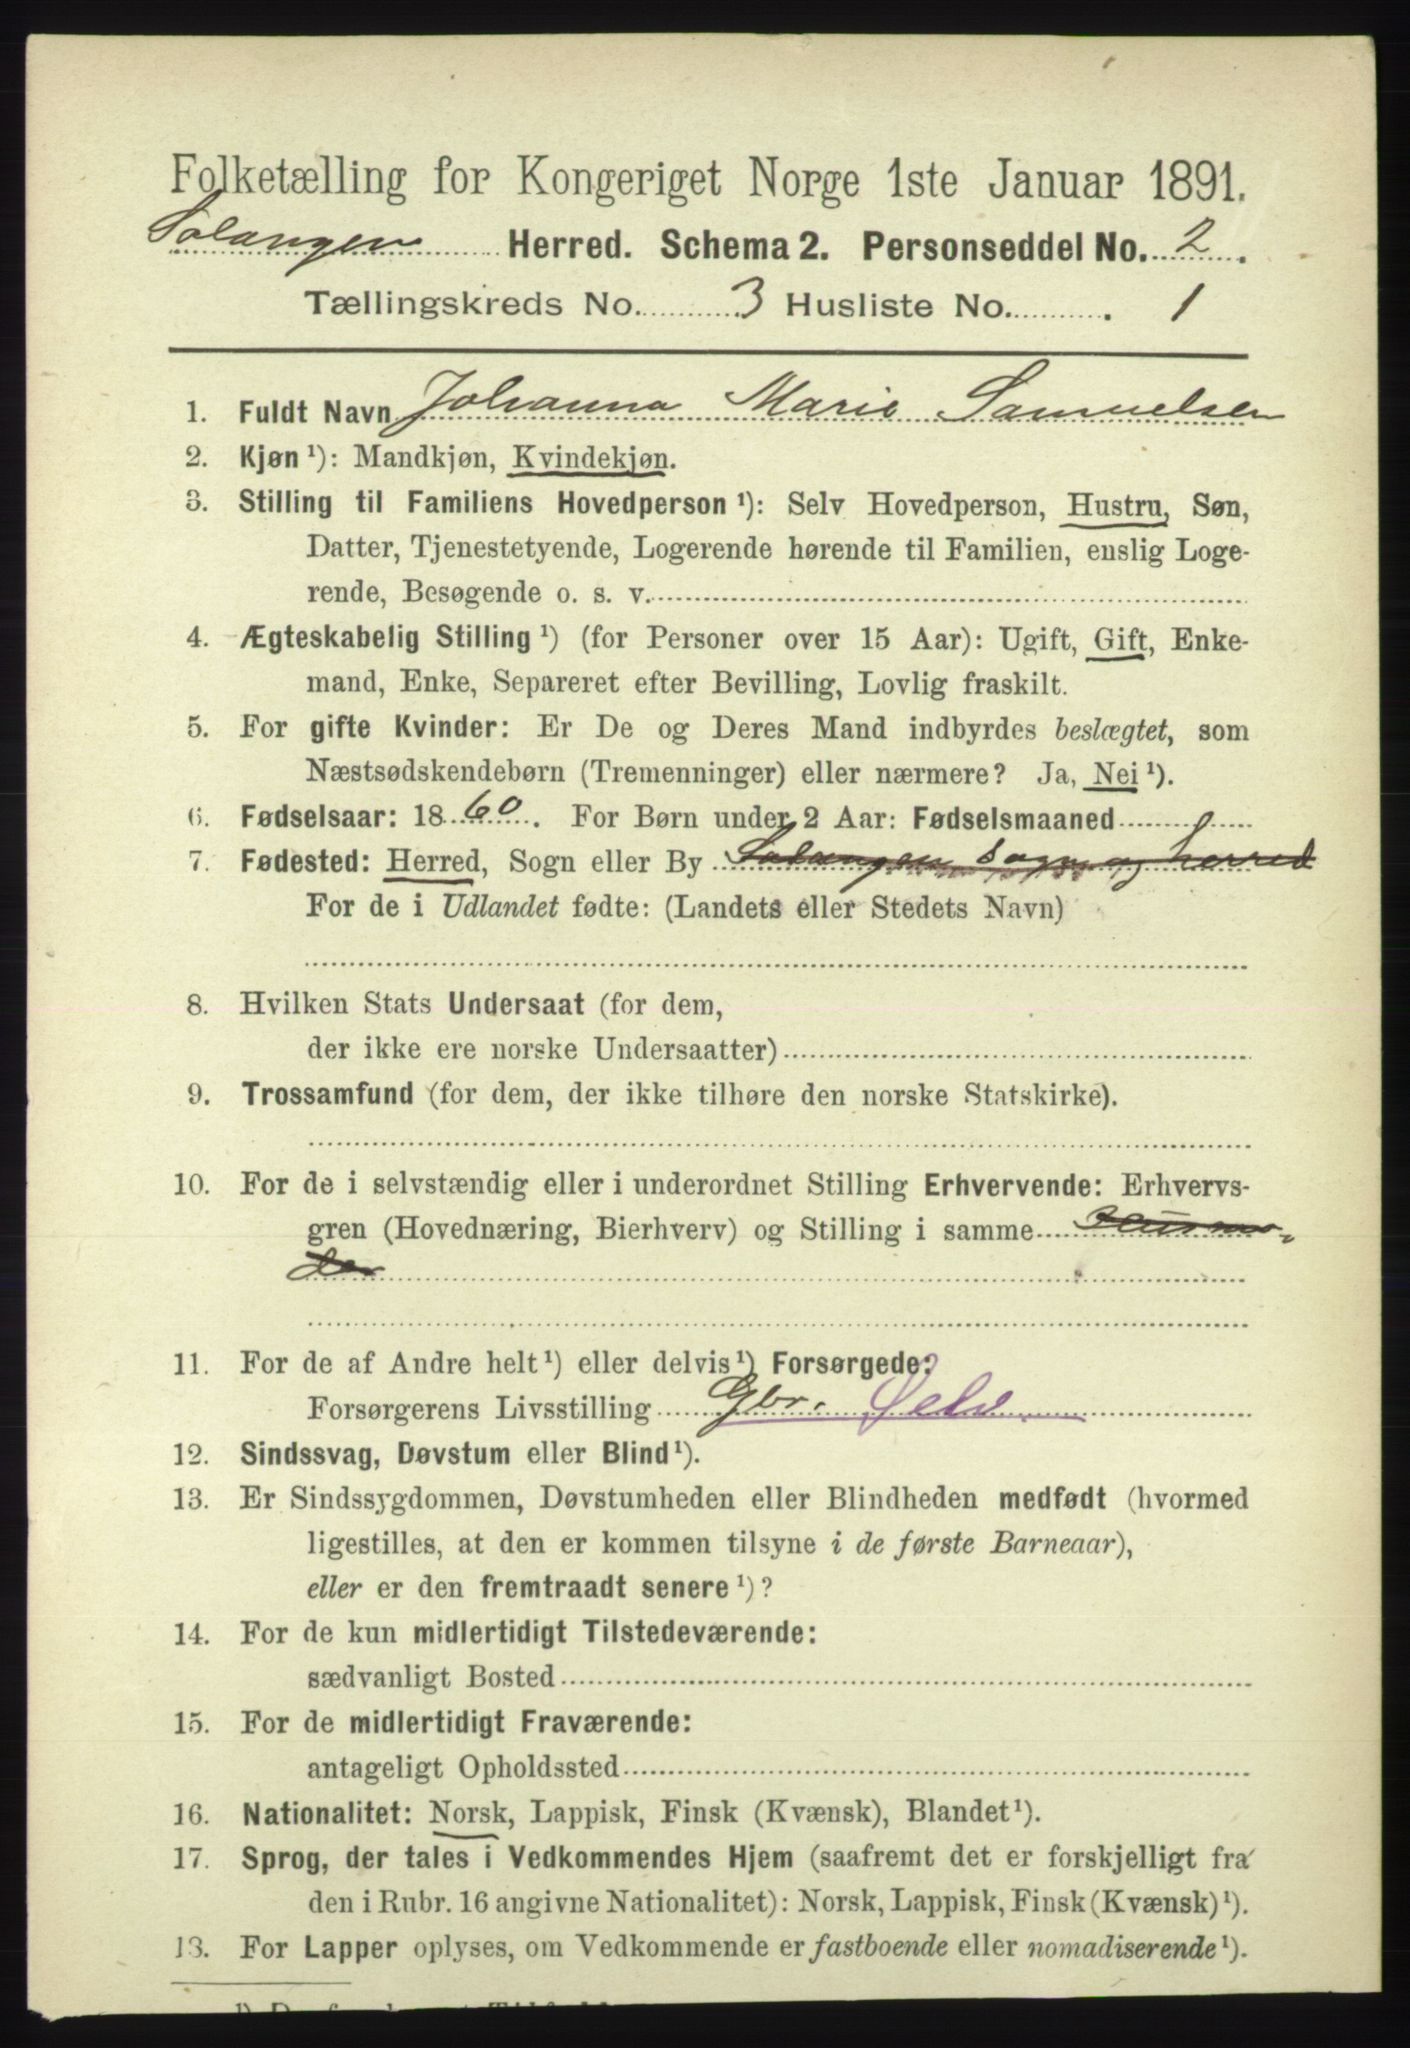 Folketælling for Kongeriget Norge 1ste Januar 1891.
Salangen Herred. Schema 2. Personseddel No. 2.
Tællingskreds No. 3 Husliste No. 1
1. Fuldt Navn Johanna Marie Samuelsen
2. Kjøn¹): Mandkjøn, Kvindekjøn.
3. Stilling til Familiens Hovedperson¹): Selv Hovedperson, Hustru, Søn,
Datter, Tjenestetyende, Logerende hørende til Familien, enslig Loge-
rende, Besøgende o. s. v.
4. Ægteskabelig Stilling¹) (for Personer over 15 Aar): Ugift, Gift, Enke-
mand, Enke, Separeret efter Bevilling, Lovlig fraskilt.
5. For gifte Kvinder: Er De og Deres Mand indbyrdes beslægtet, som
Næstsødskendebørn (Tremenninger) eller nærmere? Ja, Nei¹).
6. Fødselsaar: 1860. For Børn under 2 Aar: Fødselsmaaned
7. Fødested: Herred, Sogn eller By Salangen Sogn og herred
For de i Udlandet fødte: (Landets eller Stedets Navn)
8. Hvilken Stats Undersaat (for dem,
der ikke ere norske Undersaatter)
9. Trossamfund (for dem, der ikke tilhøre den norske Statskirke).
10. For de i selvstændig eller i underordnet Stilling Erhvervende: Erhvervs-
gren (Hovednæring, Bierhverv) og Stilling i samme Husmo-
der
11. For de af Andre helt¹) eller delvis¹) Forsørgede:
Forsørgerens Livsstilling Gbr. Selv
12. Sindssvag, Døvstum eller Blind¹).
13. Er Sindssygdommen, Døvstumheden eller Blindheden medfødt (hvormed
ligestilles, at den er kommen tilsyne i de første Barneaar),
eller er den fremtraadt senere¹)?
14. For de kun midlertidigt Tilstedeværende:
sædvanligt Bosted
15. For de midlertidigt Fraværende:
antageligt Opholdssted
16. Nationalitet: Norsk, Lappisk, Finsk (Kvænsk), Blandet¹).
17. Sprog, der tales i Vedkommendes Hjem (saafremt det er forskjelligt fra
den i Rubr. 16 angivne Nationalitet): Norsk, Lappisk, Finsk (Kvænsk)¹).
13. For Lapper oplyses, om Vedkommende er fastboende eller nomadiserende¹).